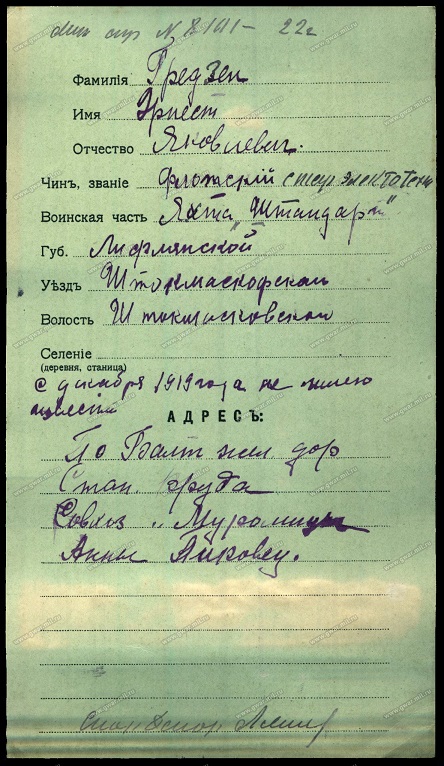 22г
Фамилія Гредзен
Имя Эрнест
Отчество Яковлевич.
Чинъ, званіе Флотскій стар электротехн
Воинская часть Яхта "Штандарт"
Губ. Лифлянской
Уѣздъ Штокмаскофской
Волость Штокмасковской
Селеніе
(деревня, станица)
С декабря 1919 года не имею
известий
АДРЕСЪ:
По Балт жел дор
Стан
Совхоз "
Анны